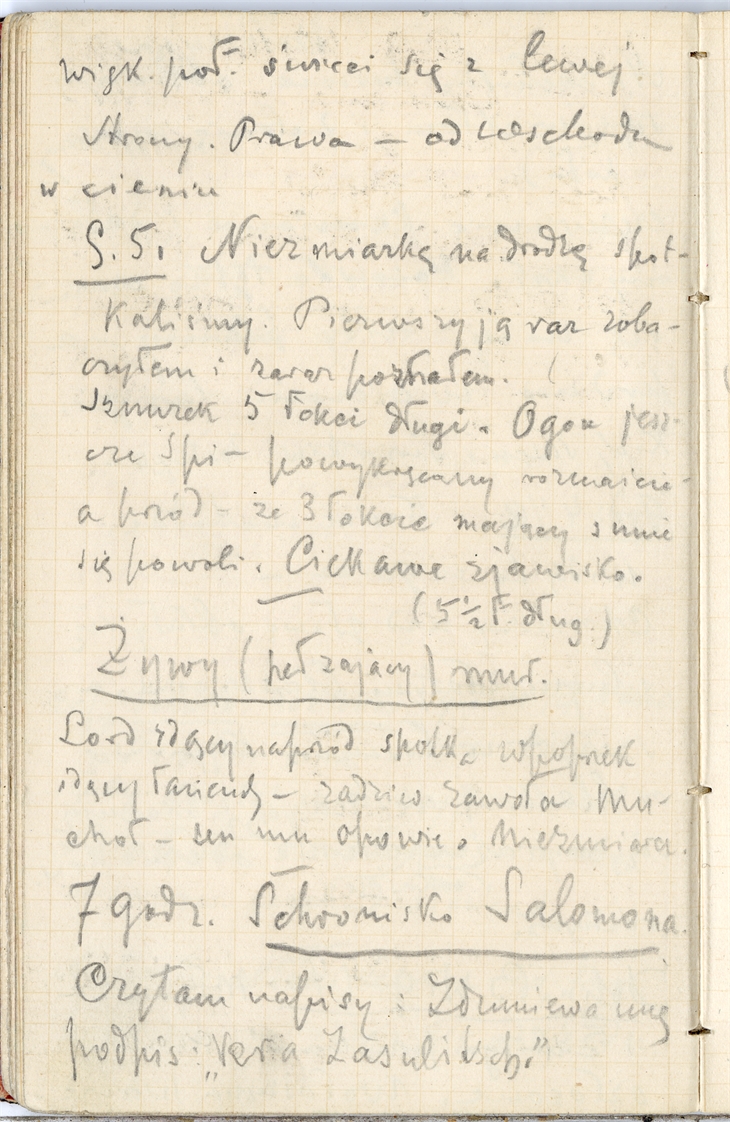 więk. poł. świeci się z lewej
strony. Prawa — od wschodu
w cieniu
g. 5. Niezmiarkę na drodzę spot-
kaliśmy. Pierwszy ją raz zoba-
czyłem i zaraz poznałem.
Sznurek 5 łokci długi. Ogon jesz-
cze śpi — powykręcany rozmaicie
a przód — ze 3 łokcie mający sunie
się powoli. Ciekawe zjawisko.
(5 ½ ł. dług.)
Żywy (pełzający) muł.
Lord idący naprzód spotka wpoprzek
idący łańcuch — zadziw zawoła Mu-
choł — ten mu opowie o Niezmiarce.
7 godz. Schronisko Salomona.
Czytam napisy: Zdumiewa mnę
podpis: „Vera Zasulitsch"